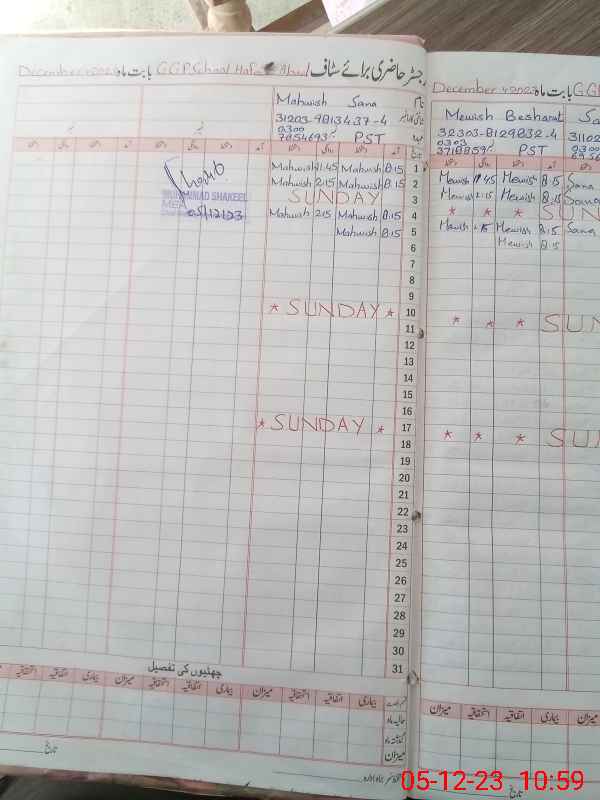 رجسٹر حاضری برائے سٹاف G.G.P.School بابت ماہ December
نام Mahwish Sana
31203-9813437-4
0300
PST
MUHAMMAD SHAKEEL
05/12/23
1 Mahwish 8.15 Mahwish 1.45
2 Mahwish 8.15 Mahwish 2.15
3 SUNDAY
4 Mahwish 8.15 Mahwish 2.15
5 Mahwish 8.15
6
7
8
9
10 * SUNDAY *
11
12
13
14
15
16
17 * SUNDAY *
18
19
20
21
22
23
24
25
26
27
28
29
30
31
چھٹیوں کی تفصیل
بیماری اتفاقیہ استحقاقیہ میزان بیماری اتفاقیہ استحقاقیہ میزان بیماری اتفاقیہ استحقاقیہ
میزان
تاریخ
بابت ماہ December
Mewish Besharat
32303-8129832-4
0303
PST
Mewish 8.15 Mewish 1.45 Sana
Mewish 8.15 Mewish 2.15 Sana
* * * SUN
Mewish 8.15 Mewish 2.15 Sana
Mewish 8.15
* * * SUN
* * * SUN
بیماری اتفاقیہ استحقاقیہ میزان
تاریخ
05-12-23 10:59